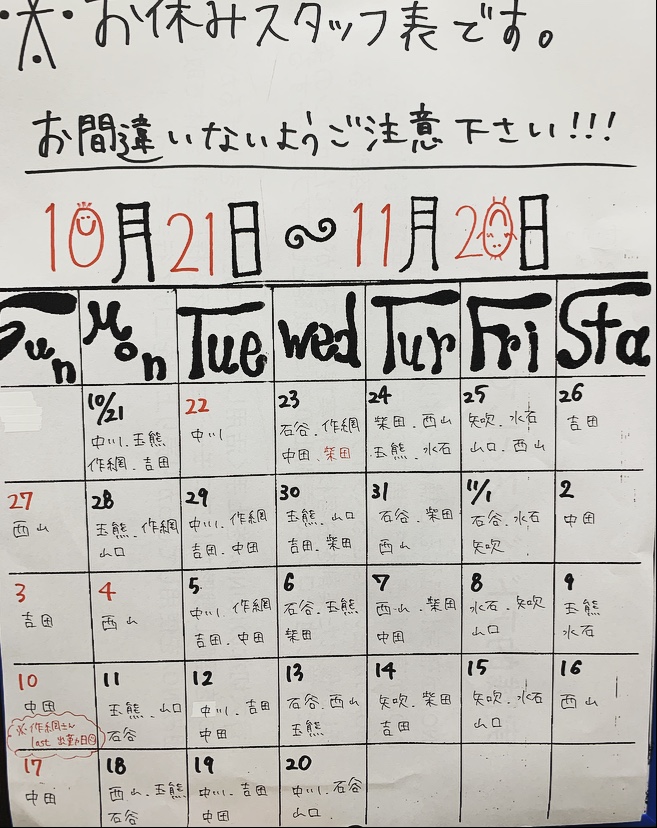 ・※・お休みスタッフ表です。
お間違いないようご注意下さい!!!
10月21日 ~ 11月20日
Sun Mon Tue wed Tur Fri Sta
10/21
中川.玉熊
作綱.吉田
22
中川
23
石谷.作綱
中田.柴田
24
柴田.西山
玉熊.水石
25
矢吹.水石
山口.西山
26
吉田
27
西山
28
玉熊.作綱
山口
29
中川.作綱
吉田.中田
30
玉熊.山口
吉田.柴田
31
石谷.柴田
西山
11/1
石谷.水石
矢吹
2
中田
3
吉田
4
西山
5
中川.作綱
吉田.中田
6
石谷.玉熊
柴田
7
西山.柴田
中田
8
水石.矢吹
山口
9
玉熊
水石
10
中田
※作綱さん
last 出勤日
11
玉熊.山口
石谷
12
中川.吉田
中田
13
石谷.西山
玉熊
14
矢吹.柴田
吉田
15
矢吹.水石
山口
16
西山
17
中田
18
西山.玉熊
石谷
19
中川.吉田
中田
20
中川.石谷
山口.